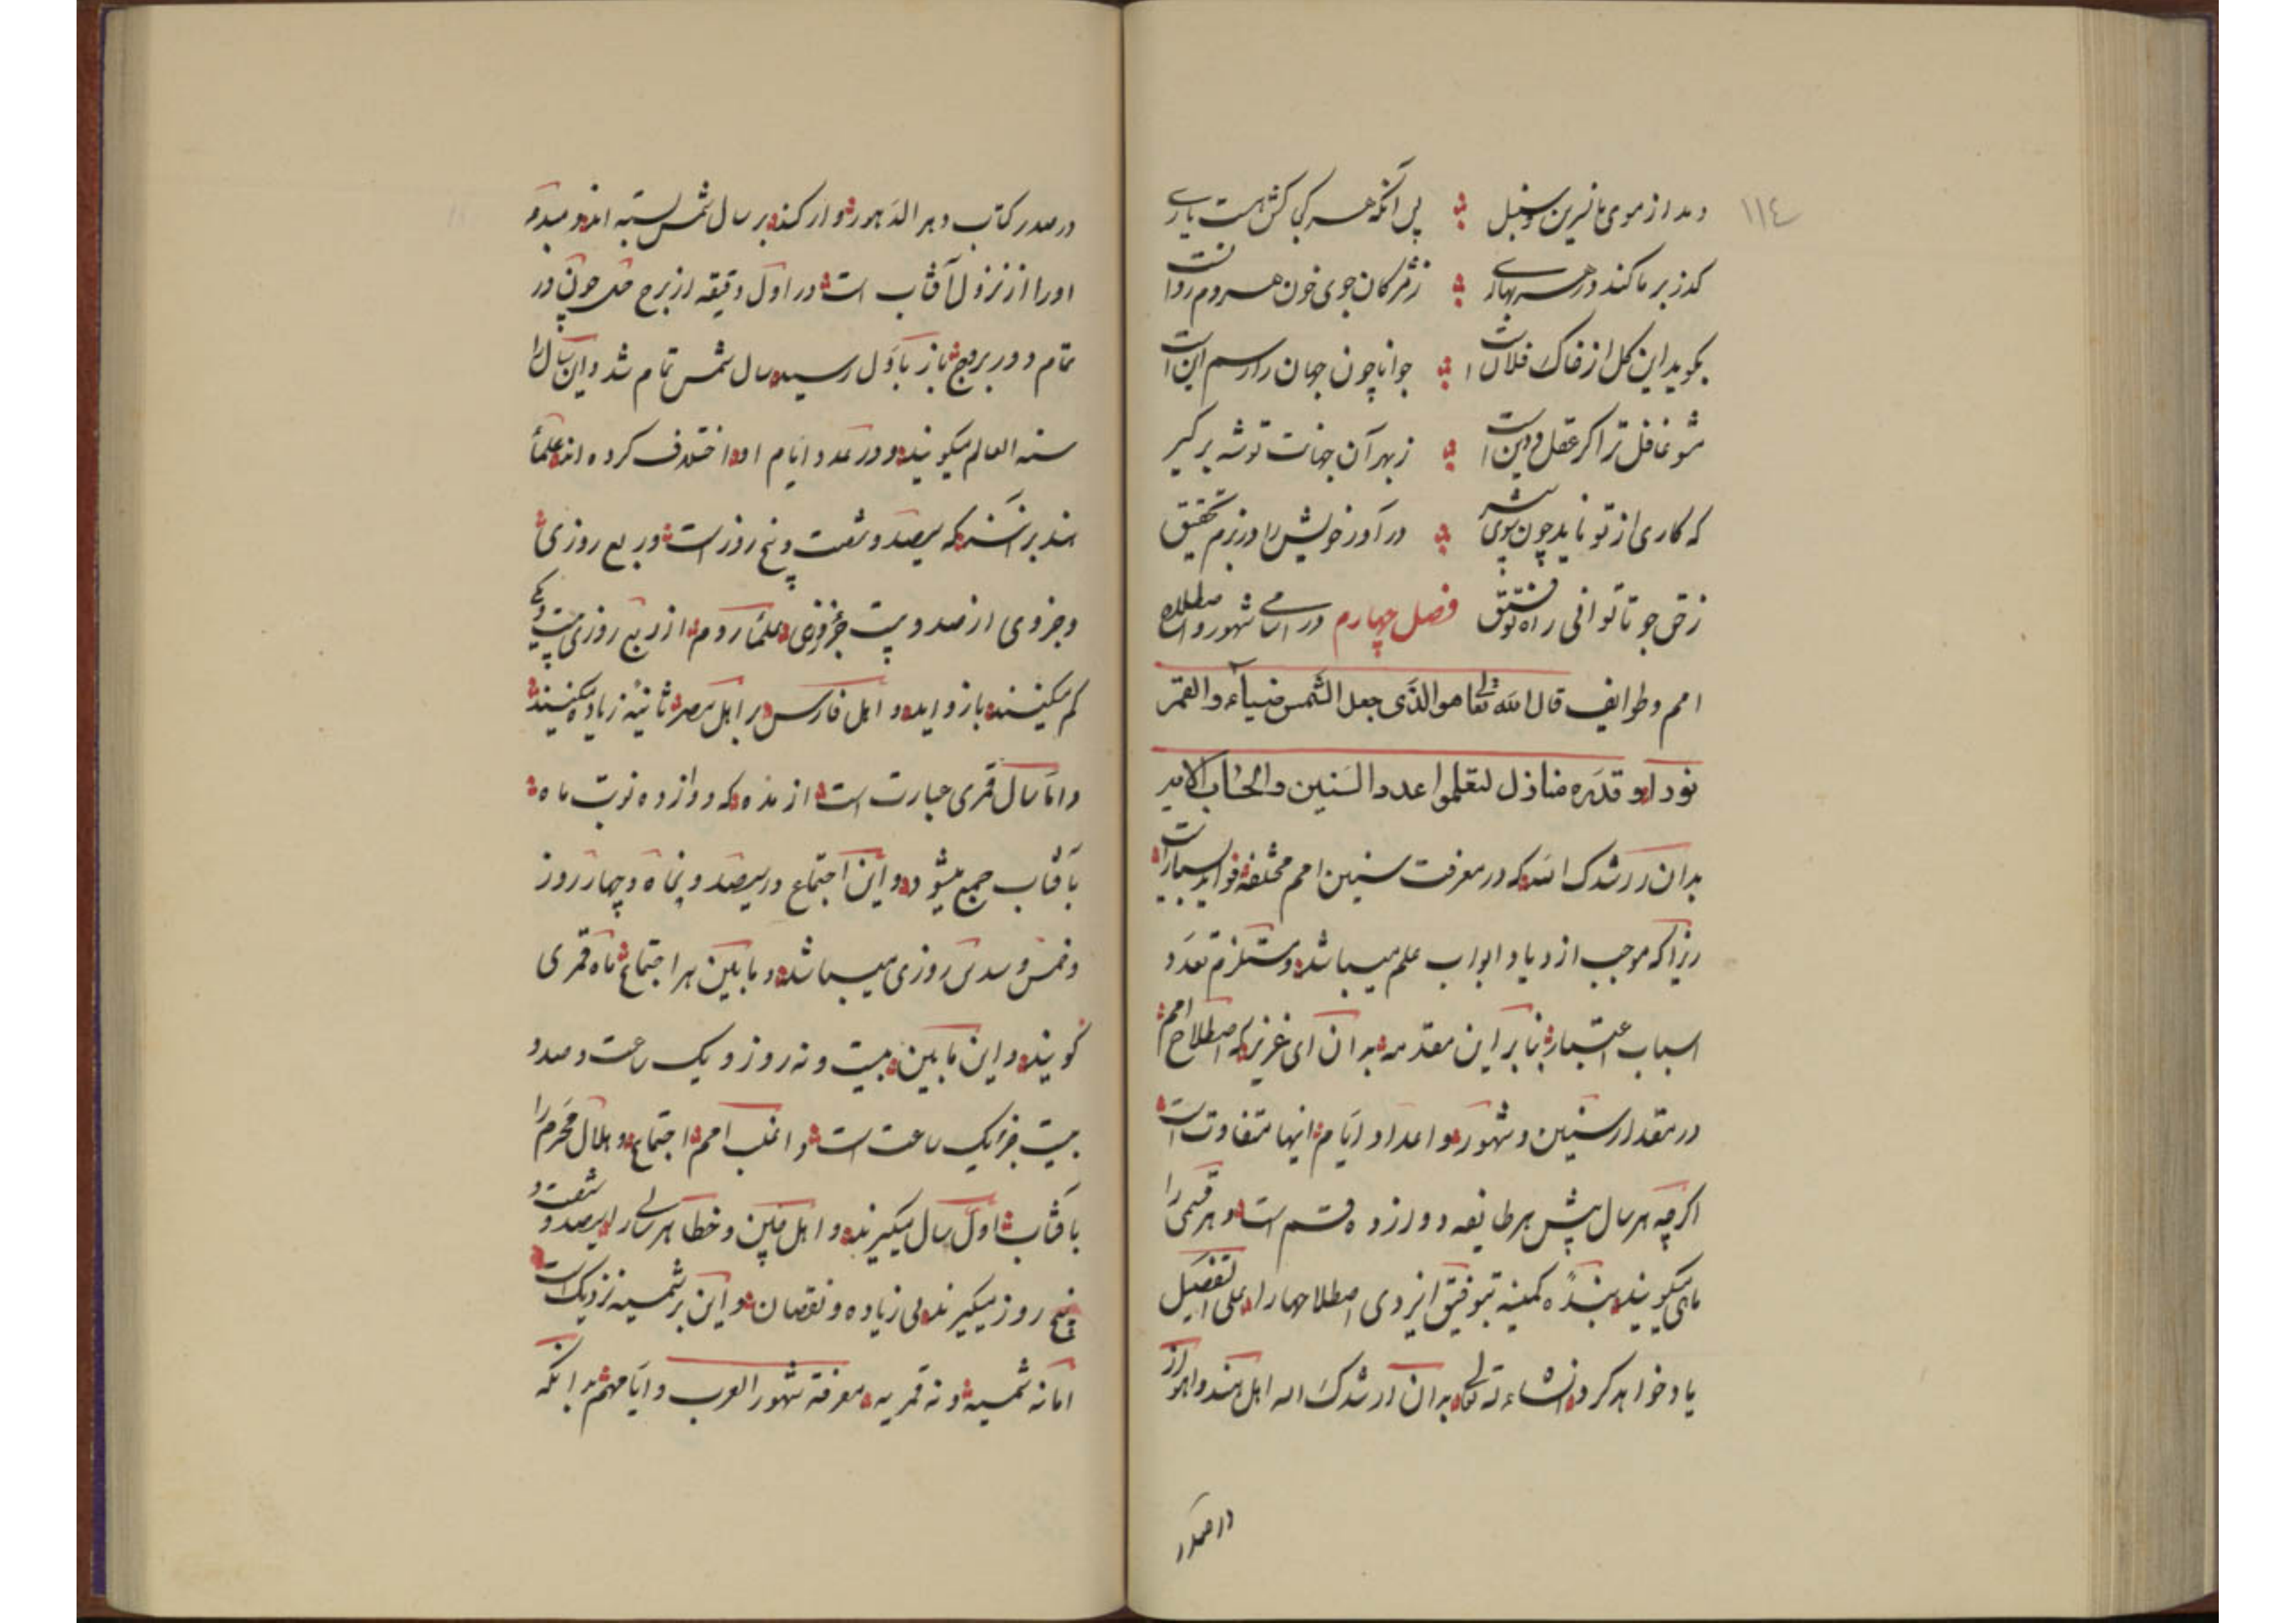 ۱۱٤
دمد از موی ما نسرین و سنبل پس آنکه هر کی کش هست یاری
گذر بر ما کند در هر بهاری ز مژگان جوی خون هر دم روانست
بگوید این گل از خاک فلانست جوانا چون جهان را رسم این است
مشو غافل ترا گر عقل و دین است ز بهر آن جهانت توشه برگیر
که کاری از تو ناید چون شوی در آور خویش را در بزم تحقیق
ز حق جو تا توانی راه توفیق فصل چهارم در اسامی شهور و اصطلاح
امم و طوایف قال الله تعالی هو الذی جعل الشمس ضیآء والقمر
نورا و قدره منازل لتعلموا عدد السنین والحساب الایه
بدان ارشدک الله که در معرفت سنین امم مختلفه فواید بسیار است
زیرا که موجب ازدیاد ابواب علم میباشد و مستلزم تعدد
اسباب اعتبار بنا بر این مقدمه بدان ای عزیز که اصطلاح امم
در مقدار سنین و شهور و اعداد ایام انها متفاوت است
اگرچه هر سال پیش هر طایفه دوازده قسم است و هر قسمی را
ماهی میگویند بندهٔ کمینه بتوفیق ایزدی اصطلاحها را علی التفصیل
یاد خواهد کرد انشاء الله تعالی بدان ارشدک الله اهل هند و اهواز
در صدر
در صدر کتاب دهر الدهور و ارکند بر سال شمس بسته اند و مبدء
او را از نزول آفتاب است در اول دقیقه از برج حمل چون در
تمام دور بروج باز باول رسید سال شمس تمام شد و این سال را
سنه العالم میگویند و در عدد ایام او اختلاف کرده اند علمآ
هند بر آنند که سیصد و شصت و پنج روز است و ربع روزی
و جزوی از صد و بیست جزو روزی و علمآ روم از ربع روزی
کم میکنند باز و اهل فارس بر اهل مصر ثانیه زیاده میکنند
و اما سال قمری عبارت است از مده که دوازده نوبت ماه
بآفتاب جمع میشود و این اجتماع در سیصد و پنجاه و چهار روز
و خمس و سدس روزی میباشد و مابین هر اجتماع ماه قمری
گویند و این مابین بیست و نه روز و یک ساعت و صد و
بیست جزو یک ساعت است و اغلب امم اجتماع و هلال محرم را
بآفتاب اول سال میگیرند و اهل چین و خطا هر سالی را سیصد و شصت و
پنج روز میگیرند بی زیاده و نقصان و این بر شمسیه نزدیک است
اما نه شمسیه و نه قمریه معرفة شهور العرب و ایامهم بدانکه